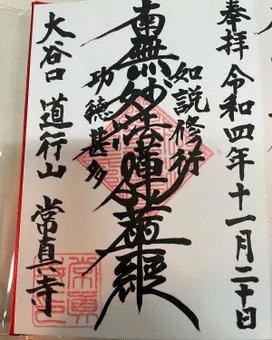 奉拝 令和四年十一月二十日
如説修行
南無妙法蓮華經
功徳甚多
大谷口 道行山 常真寺